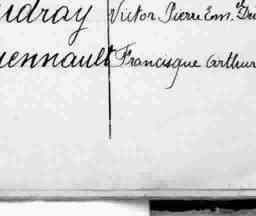 udray Victor Pierre Em. el De
uennault Francisque Arthur